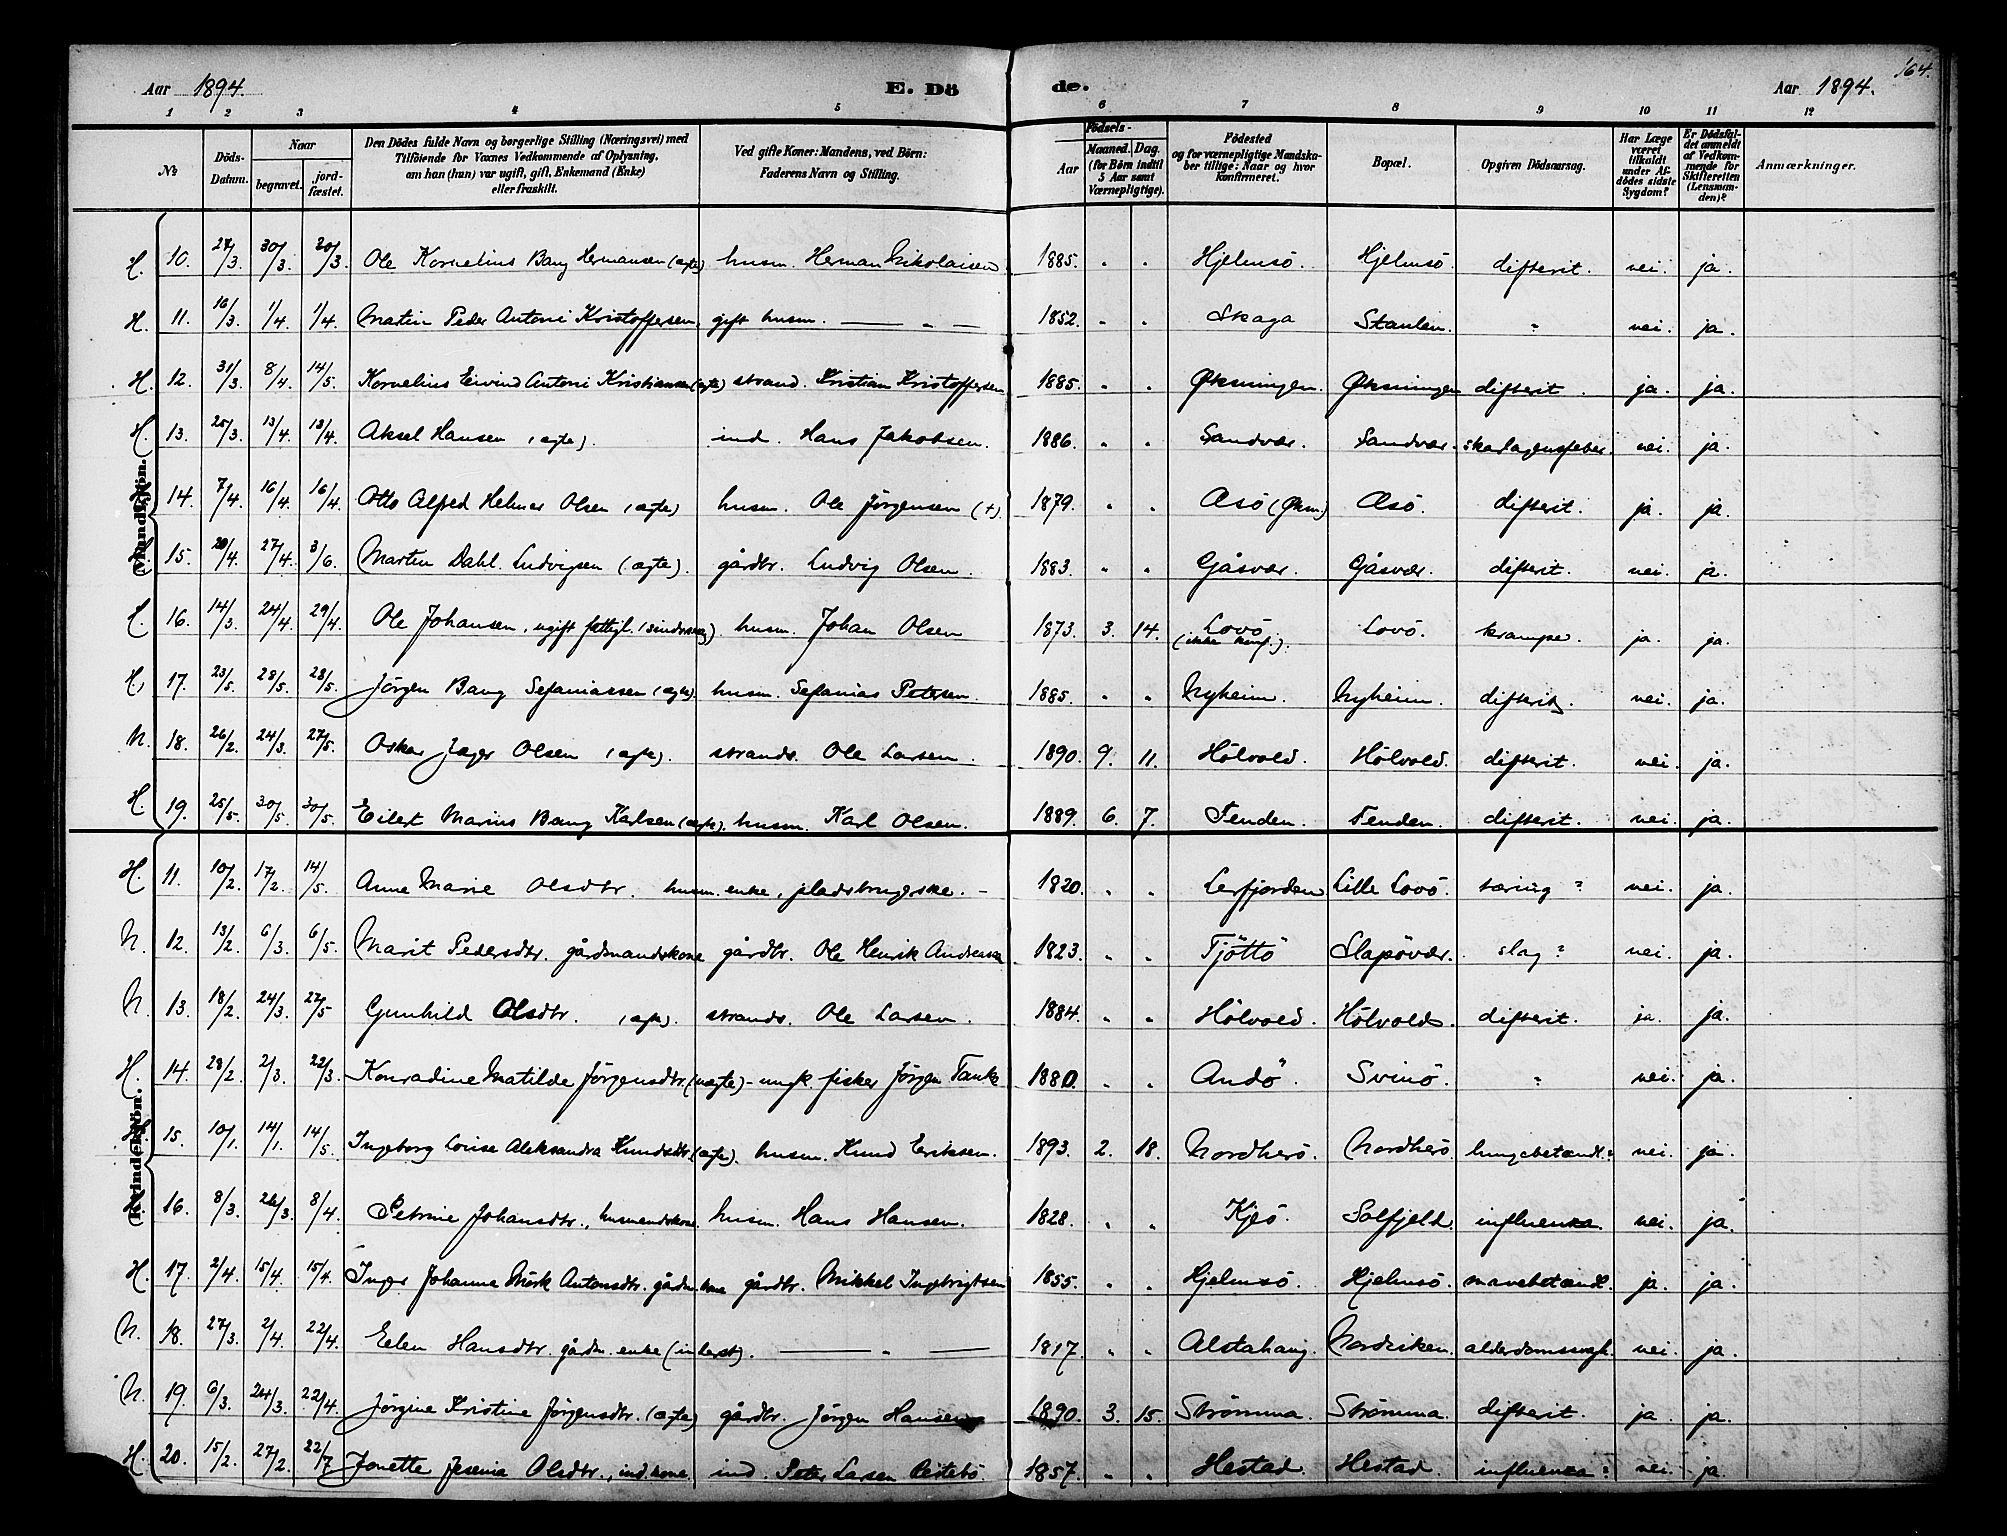 164.
Aar 1894. E. Dö de. Aar 1894.
1 2 3 4 5 6 7 8 9 10 11 12
№ Döds-Datum. Naar begravet. jord-fæstet. Den Dödes fulde Navn og borgerlige Stilling (Næringsvei) med Tilföiende for Voxnes Vedkommende af Oplysning, om han (hun) var ugift, gift, Enkemand (Enke) eller fraskilt. Ved gifte Koner: Mandens, ved Börn: Faderens Navn og Stilling. Födsels- Aar Maaned. Dag. (for Börn indtil 5 Aar samt Værnepligtige). Födested og for værnepligtige Mandskaber tillige: Naar og hvor konfirmeret. Bopæl. Opgiven Dödsaarsag. Har Læge været tilkaldt under Afdödes sidste Sygdom? Er Dödsfaldet anmeldt af Vedkommende for Skifteretten (Lensmanden)? Anmærkninger.
Mandkjön.
H. 10. 27/3. 30/3. 30/3. Ole Kornelius Bang Hermansen (ægte) husm. Herman Nikolaisen 1885. " " Hjelmsö. Hjelmsö. difterit. nei. ja.
H. 11. 16/3. 1/4. 1/4. Martin Peder Antoni Kristoffersen, gift husm. — " — 1852. " " Skaga Staulen. " nei. ja.
H. 12. 31/3. 8/4. 14/5. Kornelius Eivind Antoni Kristiansen (ægte) strand. Kristian Kristoffersen 1885. " " Øksningen. Øksningen difterit. ja. ja.
H. 13. 25/3. 13/4. 13/4. Aksel Hansen (ægte). ind. Hans Jakobsen. 1886. " " Sandvær. Sandvær. skarlagensfeber. nei. ja.
14. 7/4. 16/4. 16/4. Otto Alfred Helmer Olsen (ægte) husm. Ole Jörgensen (+). 1879. " " Æsö (Øksn.) Æsö. difterit. ja. ja.
15. 20/4. 27/4. 3/6. Martin Dahl Ludvigsen (ægte). gårdbr. Ludvig Olsen. 1883. " " Gåsvær. Gåsvær. difterit. nei. ja.
H. 16. 14/3. 24/4. 29/4. Ole Johansen, ugift fattigl. (sindssvag) husm. Johan Olsen 1873. 3. 14. Lovö (ikke konf.). Lovö. krampe. ja. ja.
H. 17. 23/5. 28/5. 28/5. Jörgen Bang Sefaniassen (ægte) husm. Sefanias Petersen. 1885. " " Nyheim. Nyheim. difterit. nei. ja.
N. 18. 26/2. 24/3. 27/5. Oskar Jager Olsen (ægte). strands. Ole Larsen. 1890. 9. 11. Hölvold. Hölvold. difterit. nei. ja.
H. 19. 25/5. 30/5. 30/5. Eilert Marius Bang Karlsen (ægte). husm. Karl Olsen. 1889. 6. 7. Tenden. Tenden. difterit. nei. ja.
Kvindekjön.
H. 11. 10/2. 17/2. 14/5. Anne Marie Olsdtr. husm. enke, pladsbrugerske. – 1820. " " Lerfjorden Lille Lovö. tæring ? nei. ja.
N. 12. 13/2. 6/3. 6/5. Marit Pedersdtr. gårdmandskone gårdbr. Ole Henrik Andreassen 1823. " " Tjöttö Slapövær. slag ? nei. ja.
N. 13. 18/2. 24/3. 27/5 Gunhild Olsdtr. (ægte). strands. Ole Larsen. 1884. " " Hölvold. Hölvold. difterit. ja. ja.
H. 14. 28/2. 2/3. 22/3. Konradine Matilde Jörgensdtr. (uægte) – ungk. fisker Jörgen Tank 1880. " " Andö. Svinö. " nei. ja.
H. 15. 10/1. 14/1. 14/5. Ingeborg Louise Aleksandra Knudsdtr. (ægte). husm. Knud Eriksen. 1893. 2. 18. Nordherö. Nordherö. lungebetændl. ? nei. ja.
16. 8/3. 26/3. 8/4. Petrine Johansdtr., husmandskone husm. Hans Hansen. 1828. " " Kjeö. Solfjeld. influenza. nei. ja.
H. 17. 2/4. 15/4. 15/4. Inger Johanna Mörk Antonsdtr. gårdm. kone gårdbr. Mikkel Ingebrigtsen 1855. " " Hjelmsö. Hjelmsö. mavebetændl. ja. ja.
N. 18. 27/3. 2/4. 22/4. Eelen Hansdtr. gårdm. enke (inderst). — " — 1817. " " Alstahaug. Nordviken. alderdomssvagh. nei. ja.
N. 19. 6/3. 24/3. 22/4. Jörgine Kristine Jörgensdtr. (ægte) gårdbr. Jörgen Hansen 1890. 3. 15. Strömma. Strömma. difterit. ja. ja.
H. 20. 15/2. 27/2. 22/7 Jonette Jesenia Olsdtr., ind. kone. ind. Peter Larsen 1857. " " Hestad. Hestad. influenza ? nei. ja